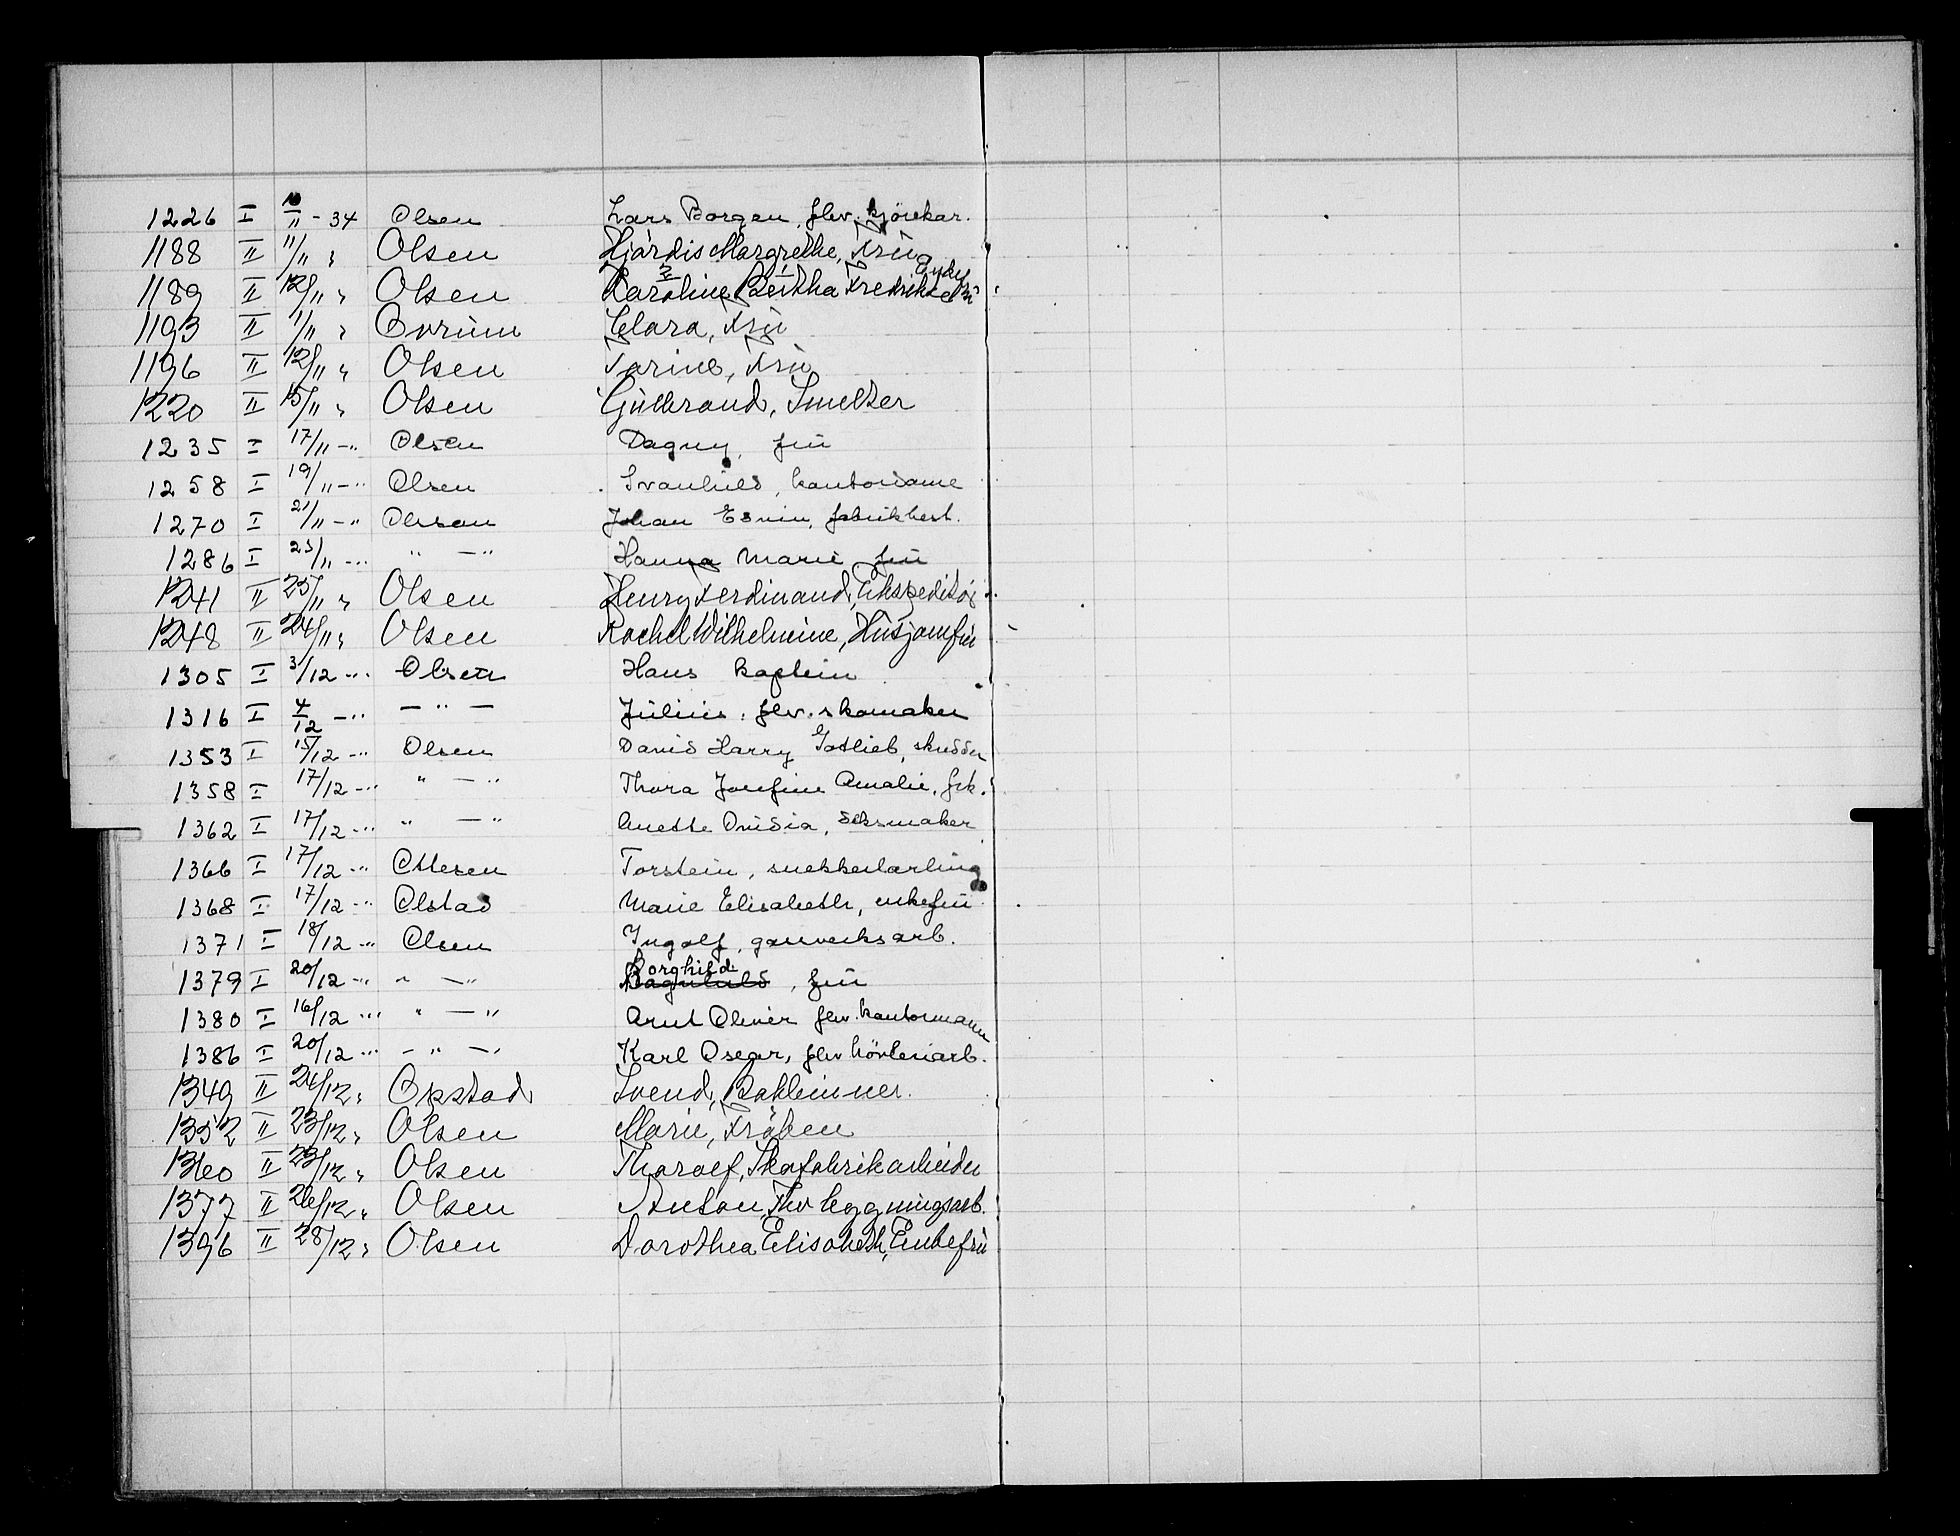 1226 I 10/11 - 34 Olsen Lars Borgen, flv. kjörekar.
1188 II 11/11 " Olsen Hjärdis Margrethe, Frü
1189 II 12/11 " Olsen Karoline Bertha Fredrikke
1193 II 1/11 " Ovrüm Clara, Frü
1196 II 12/11 " Olsen Karine, Frü
1220 II 15/11 " Olsen Gülbrand, Smelter
1235 I 17/11 -" Olsen Dagny, frü
1258 I 19/11 -" Olsen Svanhild, kontordame
1270 I 21/11 -" Olsson Johan Edvin, fabrikbest.
1286 I 23/11 -" " — " Hanna Marie frü
1241 II 25/11 " Olsen Henry Ferdinand, Ekspeditör
1248 II 24/11 " Olsen Rachel Wilhelmine, Hüsjomfrü
1305 I 3/12 -" Olsen Hans kaptein
1316 I 4/12 -" — " — Jülius, flv. skomaker
1353 I 15/12 -" Olsen David Harry Gotlieb, skredder
1358 I 17/12 -" " — " Thora Josefine Amalie, frk.
1362 I 17/12 -" " — " Anette Ovidia, seksmaker
1366 I 17/12 -" Ottesen Torstein, snekkerlærling
1368 I 17/12 -" Olstad Marie Elisabeth, enkefrü
1371 I 18/12 -" Olsen Ingolf, gassverksarb.
1379 I 20/12 -" " — " Borghild Dagnhild, frü
1380 I 16/12 -" " — " Arnt Oliver flv. kontormann
1386 I 20/12 -" — " — Karl Oscar, flv hövleriarb.
1349 II 24/12 " Opstad Svend, Boktrinner.
1352 II 23/12 " Olsen Marie, Fröken
1360 II 23/12 " Olsen Tharolf, Skofabrikarbeider
1377 II 26/12 " Olsen Anton, Fhv bryggningsarb.
1396 II 28/12 " Olsen Dorothea Elisabeth, Enkefrü